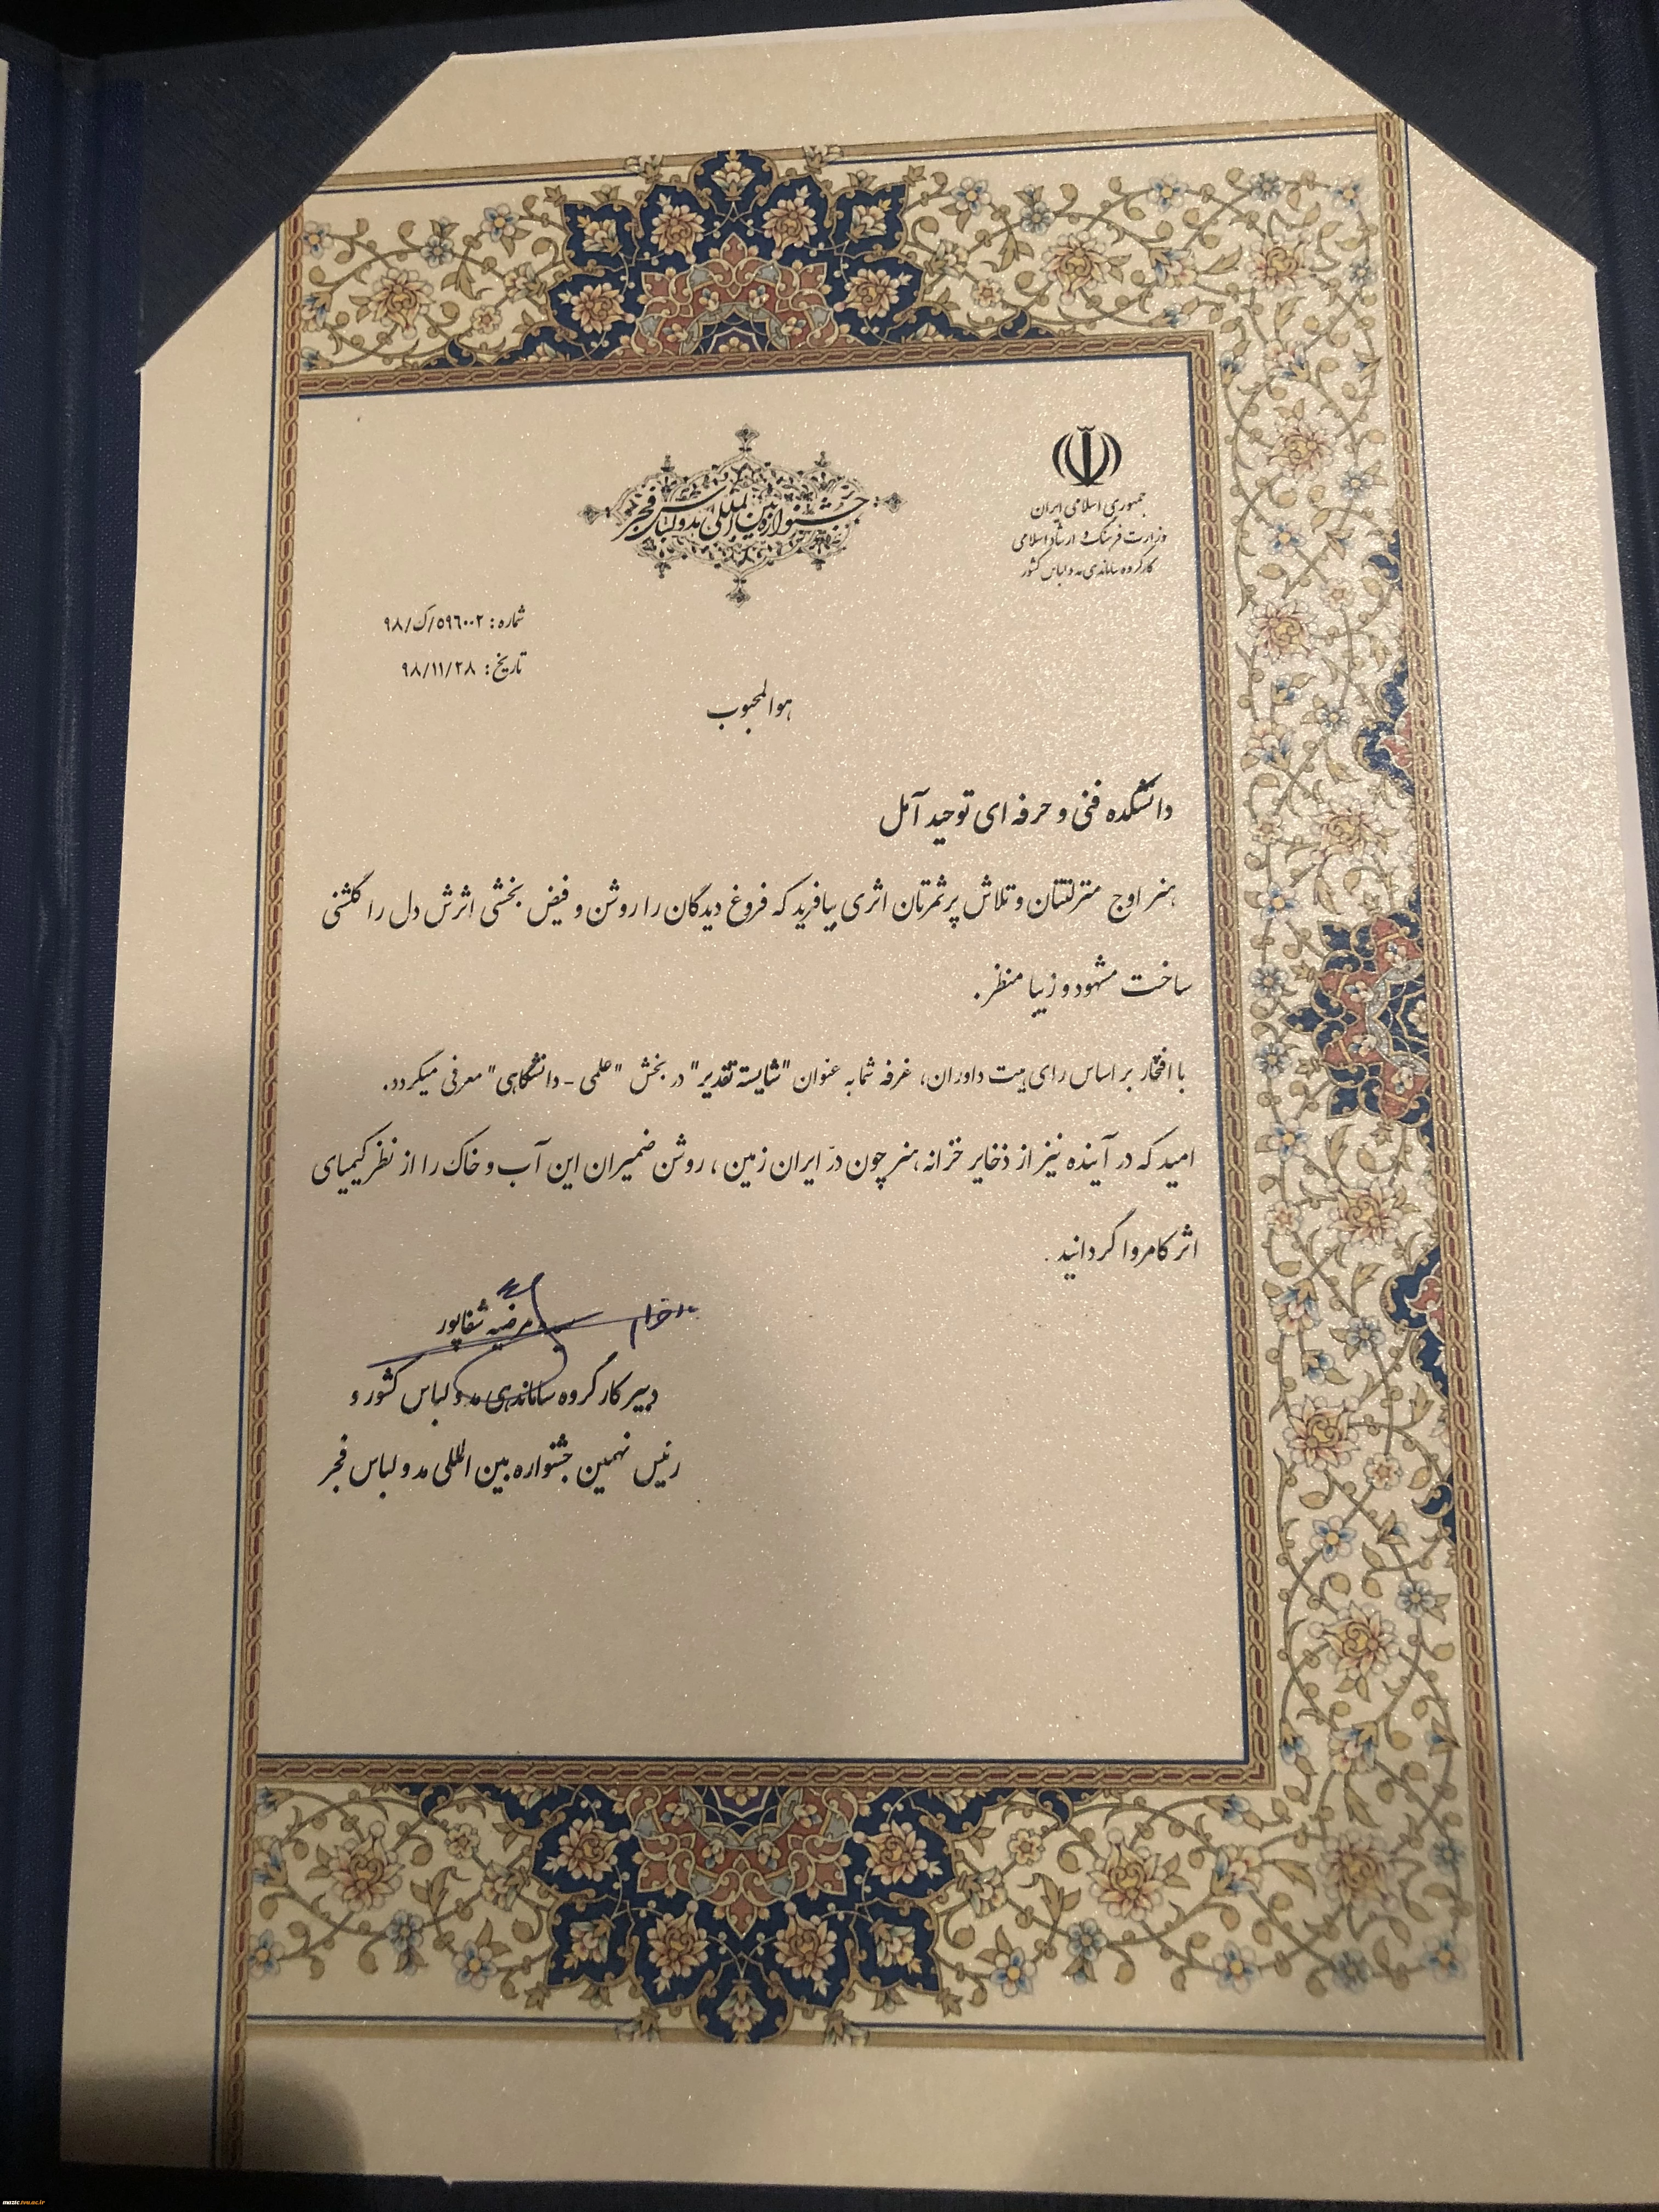 جمهوری اسلامی ایران
وزارت فرهنگ و ارشاد اسلامی
کارگروه ساماندهی مد و لباس کشور
جشنواره بین المللی مد و لباس فجر
شماره: ۵۹۶۰۰۲/ک/۹۸
تاریخ: ۹۸/۱۱/۲۸
هوالمحبوب
دانشکده فنی و حرفه ای توحید آمل
هنر اوج منزلتتان و تلاش پرثمرتان اثری بیافرید که فروغ دیدگان را روشن و فیض بخشی اثرش دل را گلشنی
ساخت مشهود و زیبا منظر.
با افتخار بر اساس رای هیت داوران، غرفه شما به عنوان "شایسته تقدیر" در بخش "علمی - دانشگاهی" معرفی میگردد.
امید که در آینده نیز از ذخایر خزانه هنر چون درّ ایران زمین، روشن ضمیران این آب و خاک را از نظر کیمیای
اثر کامروا گردانید.
مرضیه شفاپور
دبیر کارگروه ساماندهی مد و لباس کشور و
رئیس نهمین جشنواره بین المللی مد و لباس فجر
mazic.tvu.ac.ir